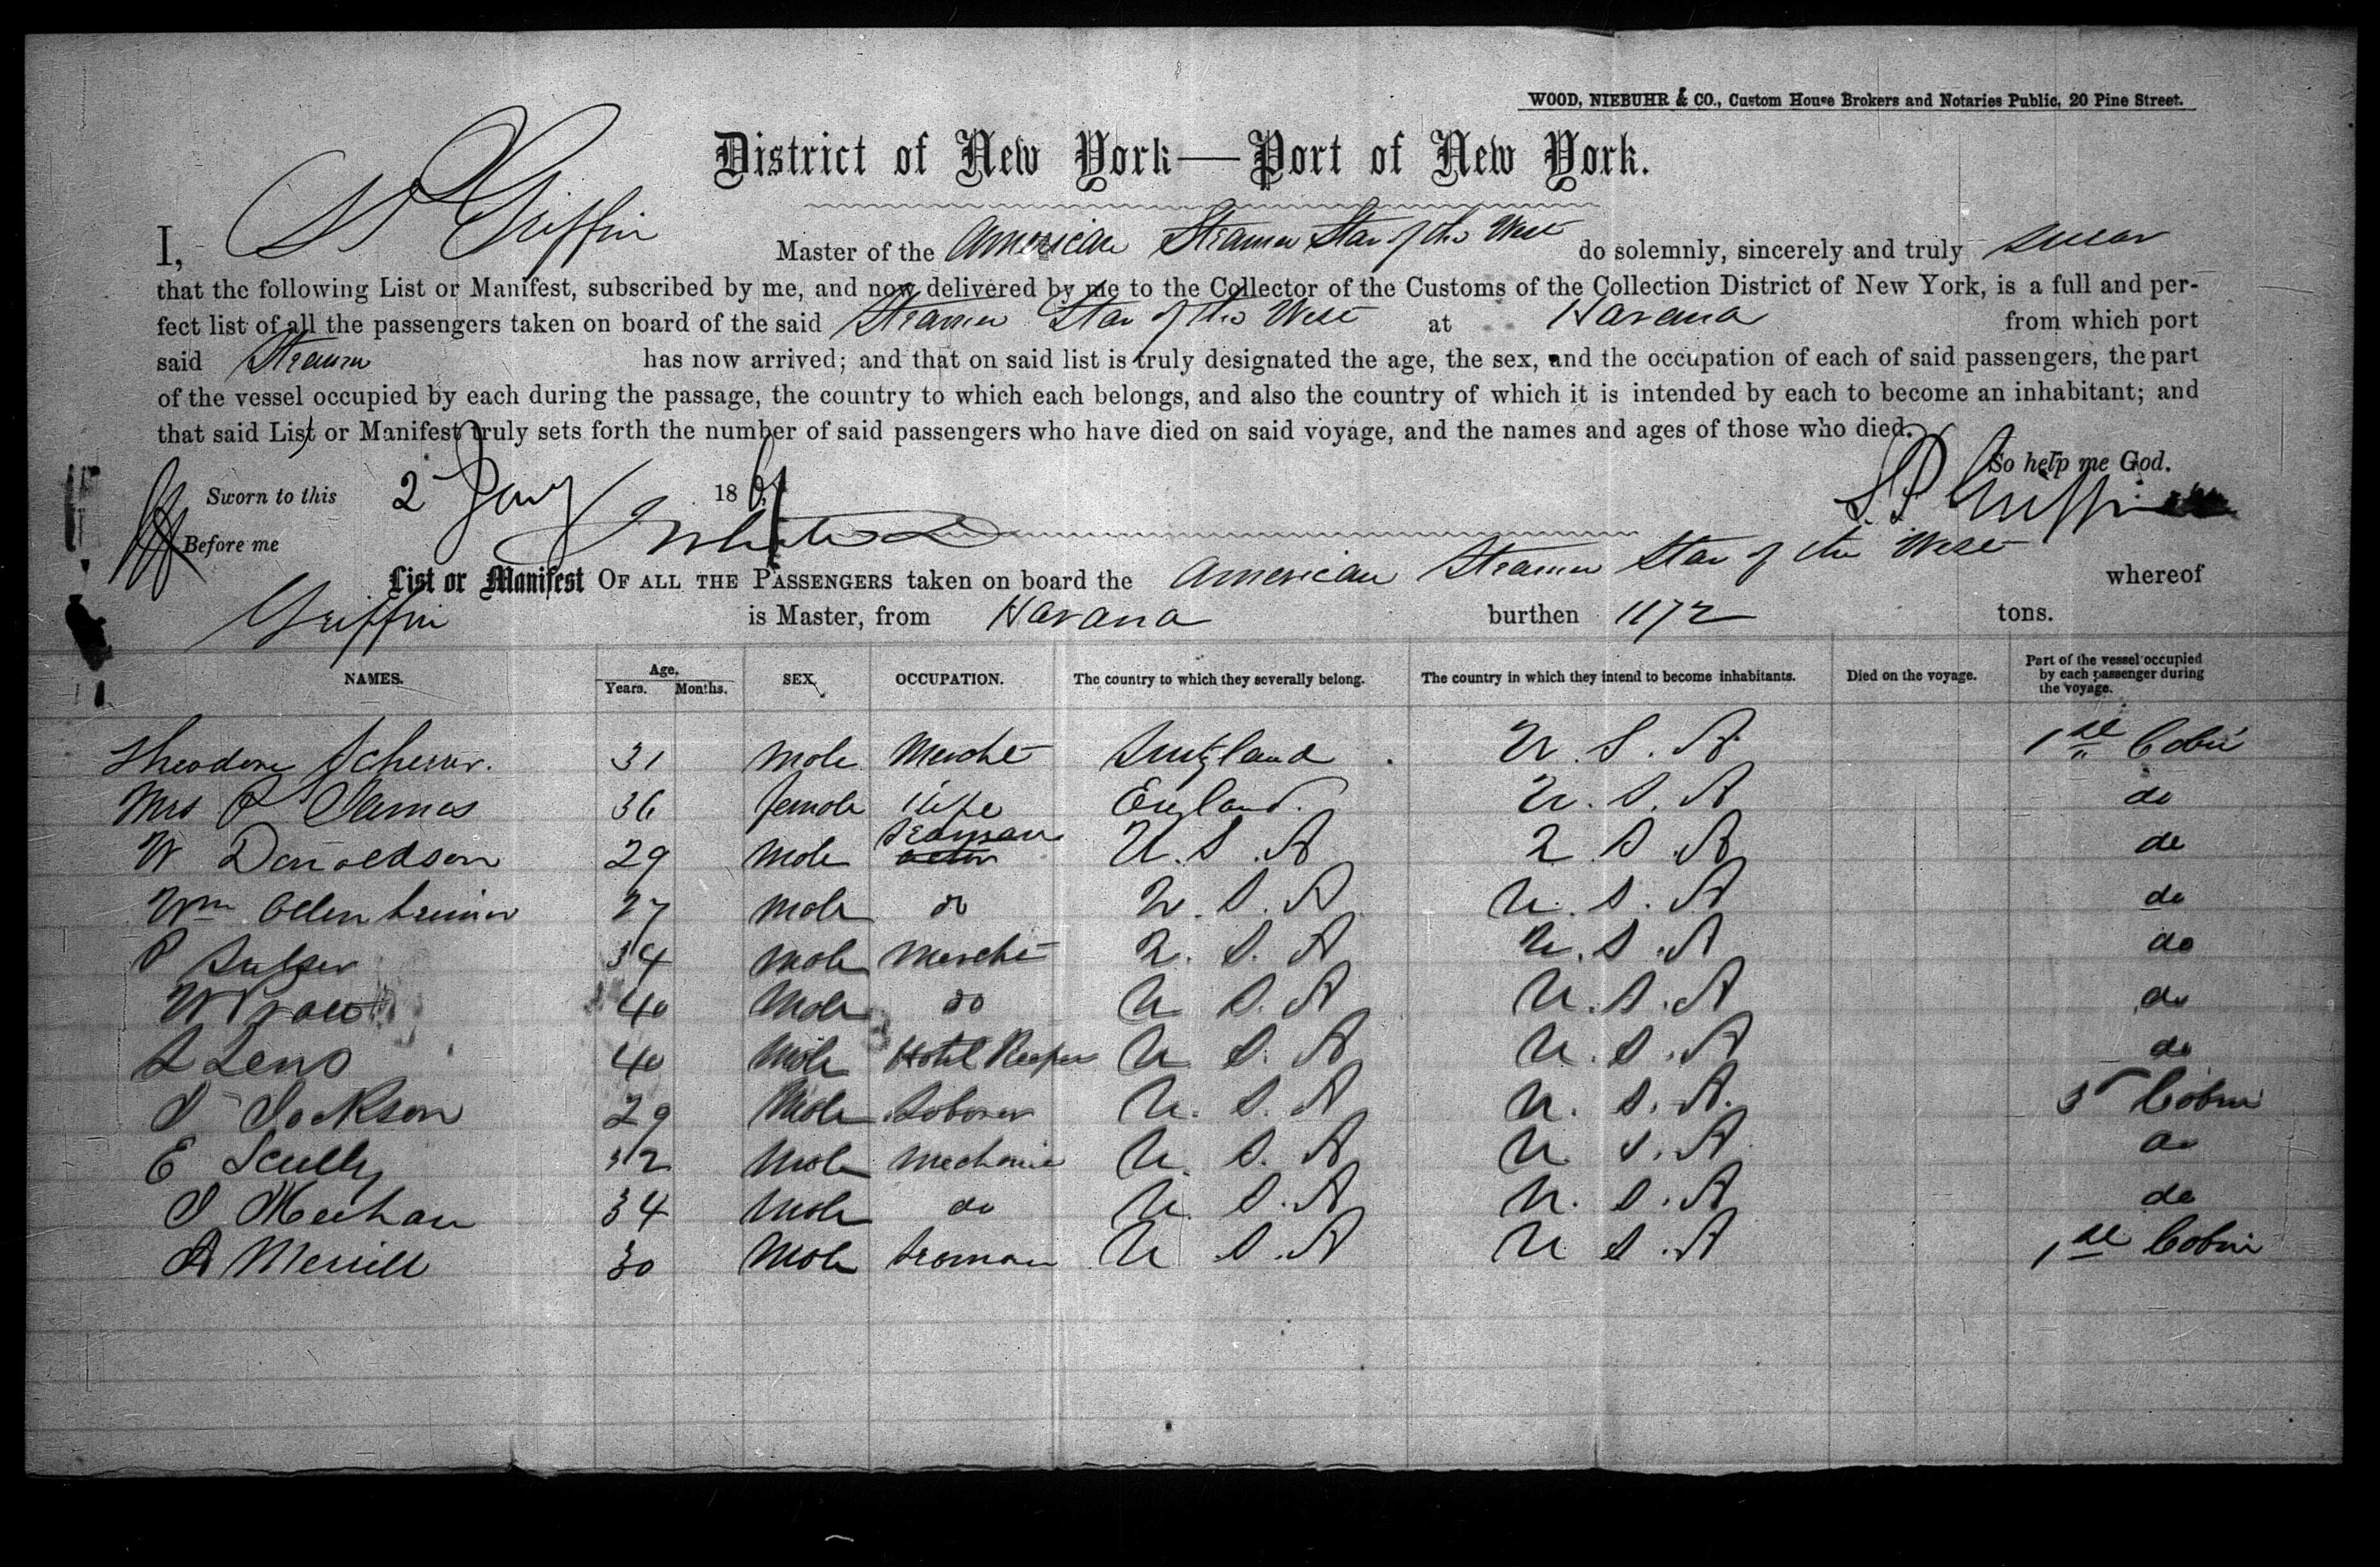 WOOD, NIEBUHR & CO., Custom House Brokers and Notaries Public, 20 Pine Street.
District of New York—Port of New York.
I, Griffin Master of the American Steamer Star of the West do solemnly, sincerely and truly swear
that the following List or Manifest, subscribed by me, and now delivered by me to the Collector of the Customs of the Collection District of New York, is a full and per-
fect list of all the passengers taken on board of the said Steamer Star of the West at Havana from which port
said Steamer has now arrived; and that on said list is truly designated the age, the sex, and the occupation of each of said passengers, the part
of the vessel occupied by each during the passage, the country to which each belongs, and also the country of which it is intended by each to become an inhabitant; and
that said List or Manifest truly sets forth the number of said passengers who have died on said voyage, and the names and ages of those who died.
So help me God.
Sworn to this 2 Jany 1861 Griffin
Before me
List or Manifest OF ALL THE PASSENGERS taken on board the American Steamer Star of the West whereof
Griffin is Master, from Havana burthen 1172 tons.
NAMES. Age. Years. Months. SEX. OCCUPATION. The country to which they severally belong. The country in which they intend to become inhabitants. Died on the voyage. Part of the vessel occupied by each passenger during the voyage.
Theodore 31 Male Mercht U.S.A 1st Cabin
Mrs P James 36 female England. U.S.A do
W Donaldson 29 Male Seaman U.S.A U.S.A do
Wm 27 Male do U.S.A U.S.A do
P 34 Male Mercht U.S.A U.S.A do
40 Male do U S.A U.S.A do
40 Male Hotel Keeper U S.A U.S.A do
J Jackson 29 Male Laborer U.S.A U.S.A. 3 Cabin
E Scully 32 Male Mechanic U.S.A U S.A do
J Meehan 34 Male do U.S.A U.S.A do
A Merrill 30 Male U S.A U S.A 1st Cabin